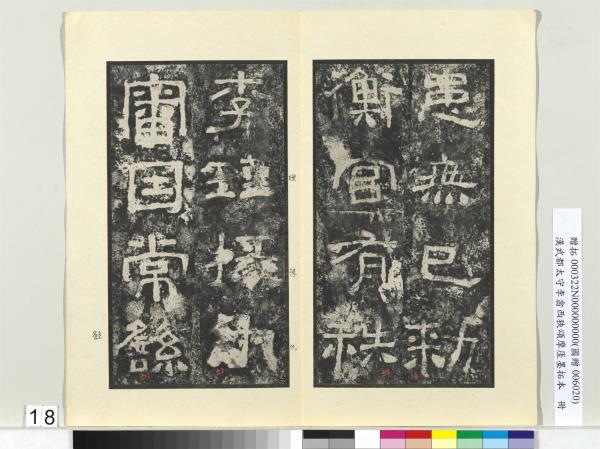 患無已勑
衡官有秩
李瑾掾仇
審因常繇
繇
贈拓 000322N000000000(國贈 006020)
漢武都太守李翕西狹頌摩崖墨拓本 冊
18